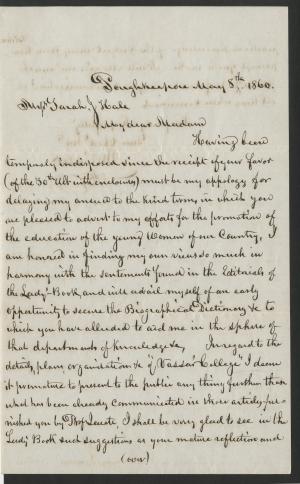 Poughkeepsie May 8th, 1860.
Mrs Sarah J Hale
My dear Madam
Having been
seriously indisposed since the receipt of your favor
(of the 30th Ult with enclosures) must be my appology for
delaying my answer to the kind terms in which you
are pleased to advert to my efforts for the promotion of
the education of the young Women of our Country, I
am honored in finding my own views so much in
harmony with the sentiments found in the Editorials of
the Lady's-Book, and will avail myself of an early
opportunity to secure the Biographical Dictionary &c to
which you have alluded to aid me in the sphere of
that departments of knowledge &c, In regard to the
details, plans organization &c of "Vassar College" I deem
it premature to present to the public any thing further than
what has been already communicated in those articles fur-
nished you by Prof Jewett I shall be very glad to see in the
Lady's Book such suggestions as your mature reflection and
(over)